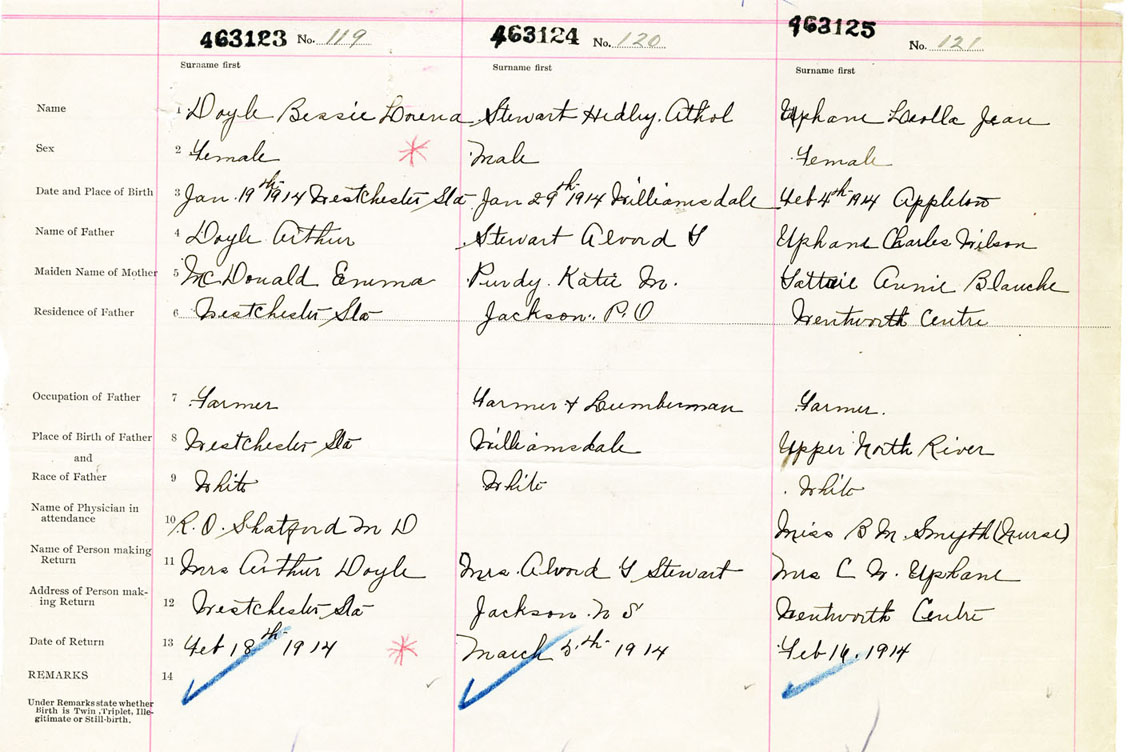 463123 No. 119 463124 No. 120 463125 No. 121
Surname first Surname first Surname first
Name 1 Doyle Bessie Lorena Stewart Hedley Athol Upham Leolla Jean
Sex 2 Female Male Female
Date and Place of Birth 3 Jan. 19th 1914 Westchester Sta Jan 29th 1914 Williamsdale Feb 4th 1914 Appleton
Name of Father 4 Doyle Arthur Stewart Alvord Y Upham Charles Wilson
Maiden Name of Mother 5 McDonald Emma Purdy. Katie M. Tattrie Annie Blanche
Residence of Father 6 Westchester Sta Jackson. P.O Wentworth Centre
Occupation of Father 7 Farmer Farmer & Lumberman Farmer.
Place of Birth of Father 8 Westchester Sta Williamsdale Upper North River
and
Race of Father 9 White White White
Name of Physician in
attendance 10 R. O. Shatford M D Miss B M. Smyth (Nurse)
Name of Person making
Return 11 Mrs Arthur Doyle Mrs. Alvord Y Stewart Mrs C W. Upham
Address of Person mak-
ing Return 12 Westchester Sta Jackson. N S Wentworth Centre
Date of Return 13 Feb 18th 1914 March 5th 1914 Feb 16. 1914
REMARKS 14
Under Remarks state whether
Birth is Twin, Triplet, Ille-
gitimate or Still-birth.